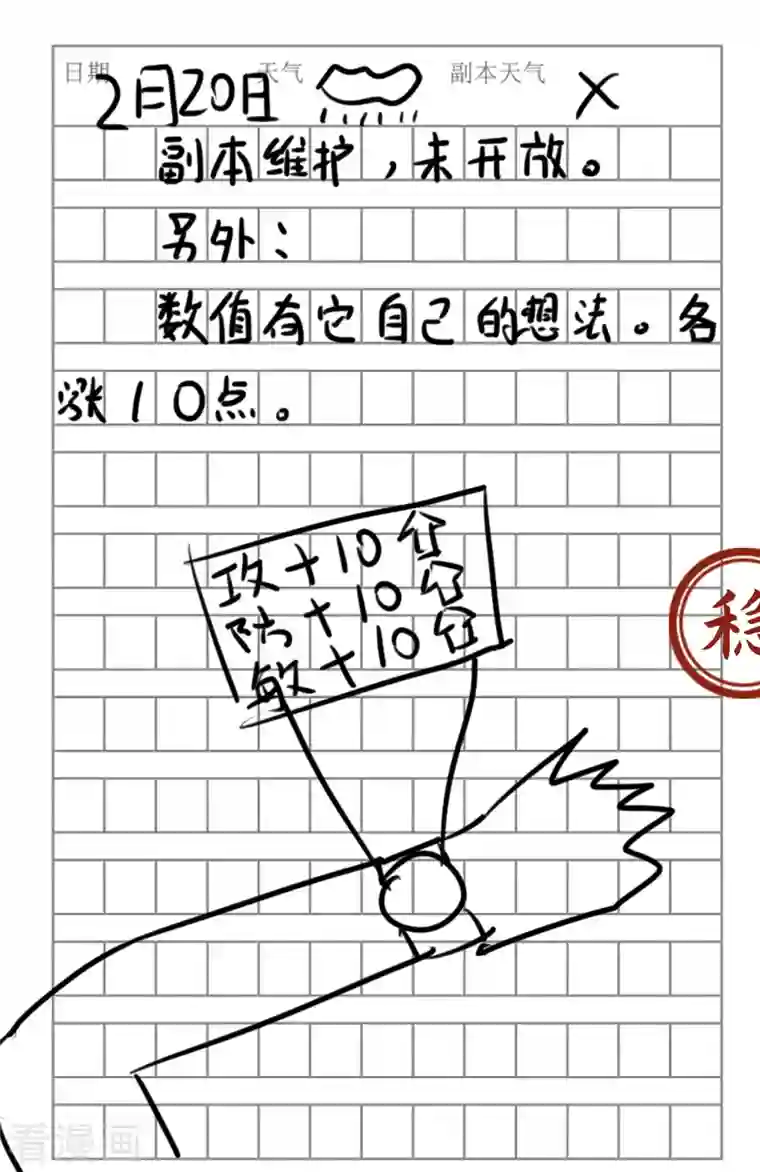 日期 2月20日 天气 副本天气 X
副本维护，未开放。
另外：
数值有它自己的想法。各
涨10点。
攻+10
防+10
敏+10
稳
看漫画